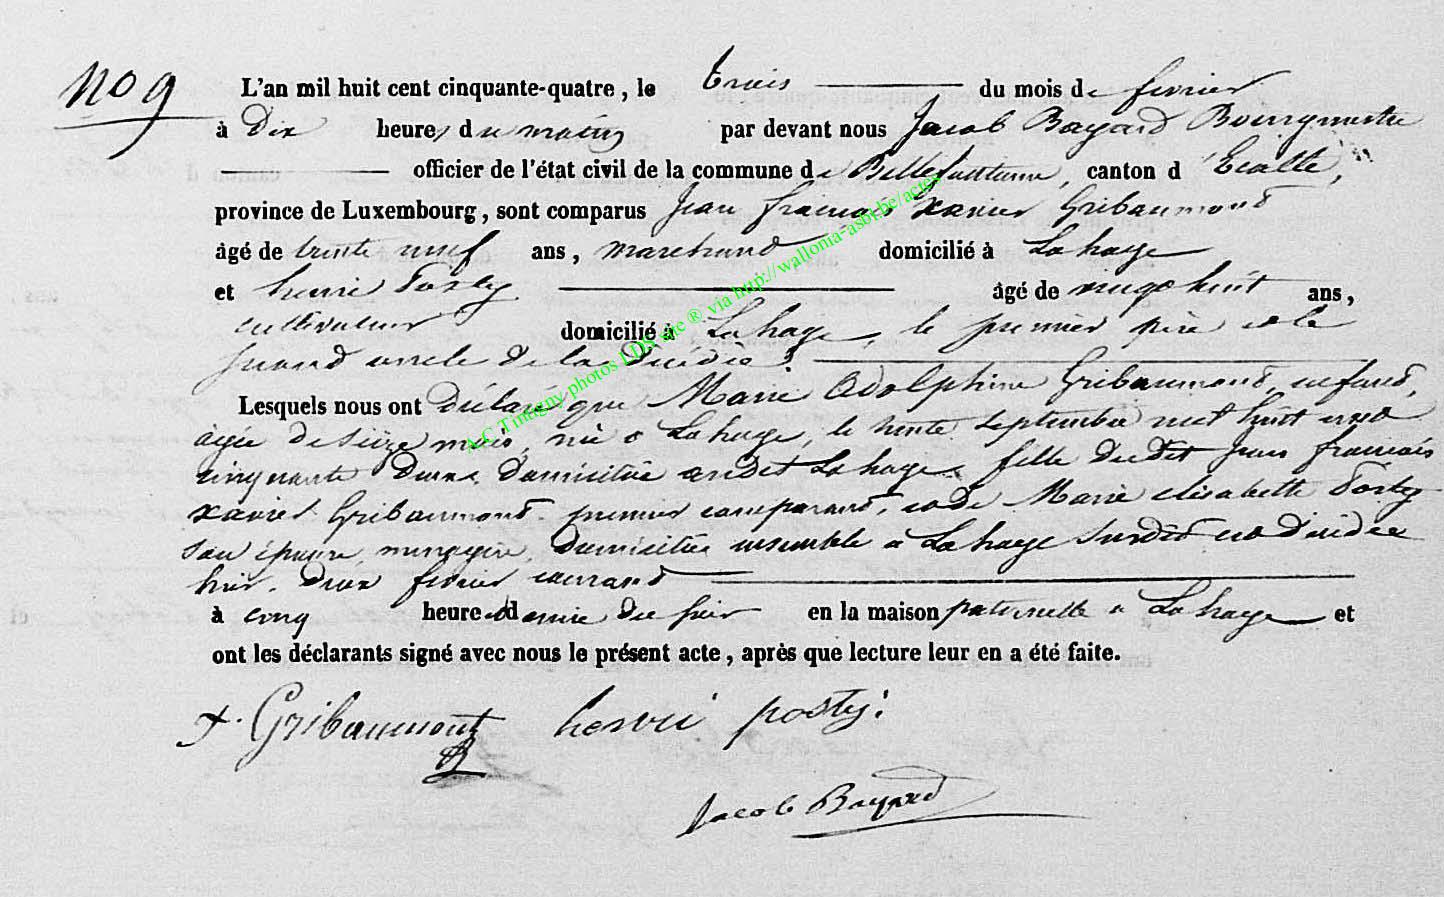 No 9
L'an mil huit cent cinquante-quatre, le trois du mois de fevrier
à Dix heures du matin par devant nous Jacob Bayard Bourgmestre
officier de l'état civil de la commune de Bellefontaine, canton d'Etalle,
province de Luxembourg, sont comparus Jean francois Xavier Gribaumont
âgé de trente neuf ans, marchand domicilié à Lahage
et henri Posty âgé de huit ans,
cultivateur domicilié à Lahage, le premier père et le
grand oncle de la Décédée
Lesquels nous ont Déclaré que Marie Adolphine Gribaumont, enfant,
agée de Seize mois, née a Lahage, le trente Septembre mil huit cent
cinquante Deux, Domiciliée audit Lahage fille dudit jean francois
xavier Gribaumont premier comparant, et de Marie elisabette Posty
son épouse menagère, Domiciliés ensemble a Lahage Surdit est Décédée
hier Deux fevrier courrant
à cinq heures et demie du soir en la maison paternelle a Lahage et
ont les déclarants signé avec nous le présent acte, après que lecture leur en a été faite.
x. Gribaumont henri posty
Jacob Bayard
A.C Tintigny photos LDS site ® via http://wallonia-asbl.be/actes